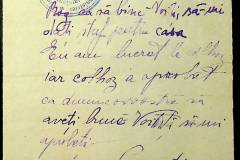 Rog ca să bine Voiți să-mi
dați stuf pentru casa
Eu am lucrat la colhoz
iar colhoz a aprobat
ca dumneavoastră să
aveți buna Voință să-mi
aprobați